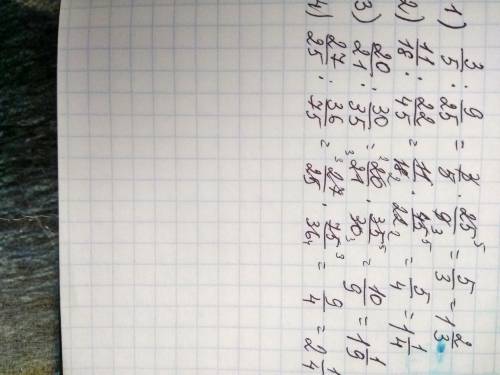 1) 3/5 : 9/25 = 3/5 · 25⁵/9₃ = 5/3 = 1 2/3
2) 11/18 : 22/45 = 11/18₂ · 45⁵/22₂ = 5/4 = 1 1/4
3) 20/21 : 30/35 = ²20/₃21 · 35⁵/30₃ = 10/9 = 1 1/9
4) 27/25 : 36/75 = ³27/25 · 75³/36₄ = 9/4 = 2 1/4